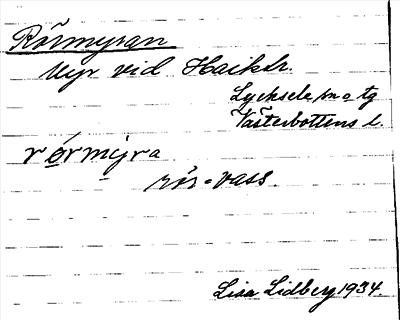 Rörmyran
Myr vid Hacksk.
Lycksele sn o tg
Västerbottens l.
rörmyra
rör = vass.
Lisa Lidberg 1934.